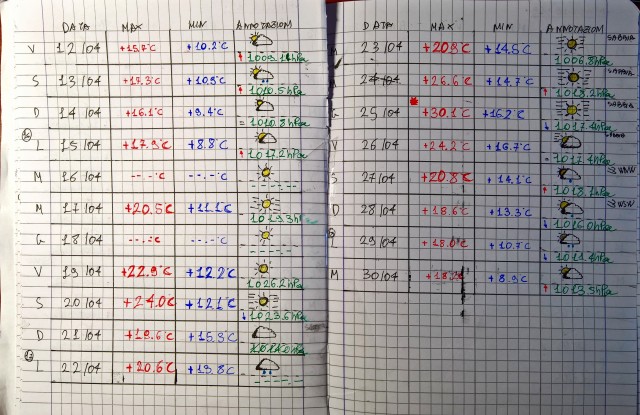 DATA MAX MIN ANNOTAZIONI
V 12/04 +15.7°C +10.2°C
↑ 1009.1hPa
S 13/04 +17.3°C +10.9°C
↑ 1010.5hPa
D 14/04 +16.1°C +9.4°C
= 1010.8hPa
L 15/04 +17.9°C +8.8°C
↑ 1017.2hPa
M 16/04 --.-°C --.-°C
M 17/04 +20.5°C +11.1°C
1019.3hPa
G 18/04 --.-°C --.-°C
V 19/04 +22.9°C +12.2°C
1026.2hPa
S 20/04 +24.0°C +12.1°C
↓ 1023.6hPa
D 21/04 +19.6°C +15.3°C
L 22/04 +20.6°C +13.8°C
DATA MAX MIN ANNOTAZIONI
23/04 +20.9°C +14.5°C
- 1006.8hPa
24/04 +26.6°C +14.7°C
↑ 1013.2hPa
G 25/04 +30.1°C +16.2°C
↓ 1017.4hPa
V 26/04 +24.2°C +16.7°C
= 1017.4hPa
S 27/04 +20.8°C +14.1°C WNW
↑ 1018.7hPa
D 28/04 +18.6°C +13.3°C WSW
↓ 1016.0hPa
29/04 +18.0°C +10.7°C
↓ 1011.4hPa
M 30/04 +8.9°C
↑ 1013.5hPa